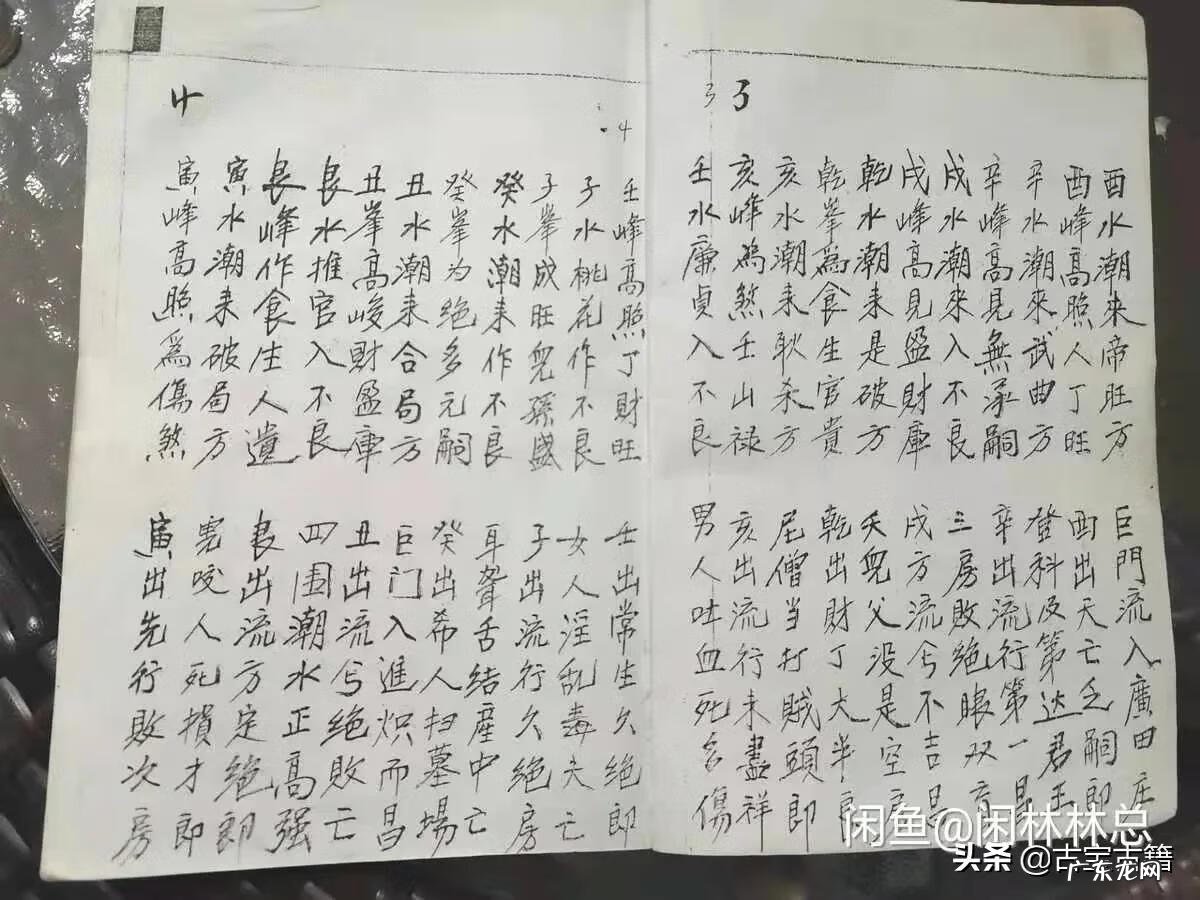 3
3
酉水潮來帝旺方 巨門流入廣田庄
酉峰高照人丁旺 酉出天亡乏嗣郎
辛水潮來武曲方 登科及第达君王
辛峰高見無承嗣 辛出流行第一
戌水潮來入不良 三房敗绝眼双盲
戌峰高見盈財庫 戌方流兮不吉昌
乾水潮来是破方 夭兒父没是空房
乾峯為食生官貴 乾出財丁大半良
亥水潮耒耿杀方 尼僧当打贼頭郎
亥峰為煞壬山禄 亥出流行未盡祥
壬水廉貞入不良 男人吐血死多傷
4
壬峰高照丁財旺 壬出常生久绝郎
子水桃花作不良 女人淫乱毒夫亡
子峯成旺兒孫盛 子出流行久绝房
癸水潮耒作不良 耳聋舌结産中亡
癸峯为绝多元嗣 癸出希人扫墓場
丑水潮耒合局方 巨门入進炽而昌
丑峯高峻財盈庫 丑出流兮绝敗亡
艮水推官入不良 四围潮水正高强
艮峰作食生人遺 艮出流方定绝郎
寅水潮耒破局方 咬人死損才郎
寅峰高照為傷煞 寅出先行敗次房
4
闲鱼@闲林林总
头条@古字古籍
广东龙网